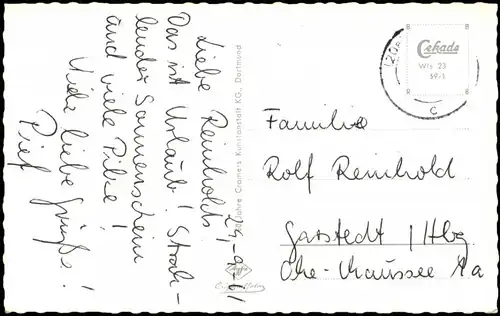 24.-9.-61
Liebe Reinholds!
Das ist Urlaub! Strah-
lender Sonnenschein
und viele Pilze!
Viele liebe Grüße!
Jahre Cramers Kunstanstalt KG., Dortmund
Cekade
Wls 23
59/1
c
Familie
Rolf Reinhold
Garstedt / Hbg
Ohe-Chaussee